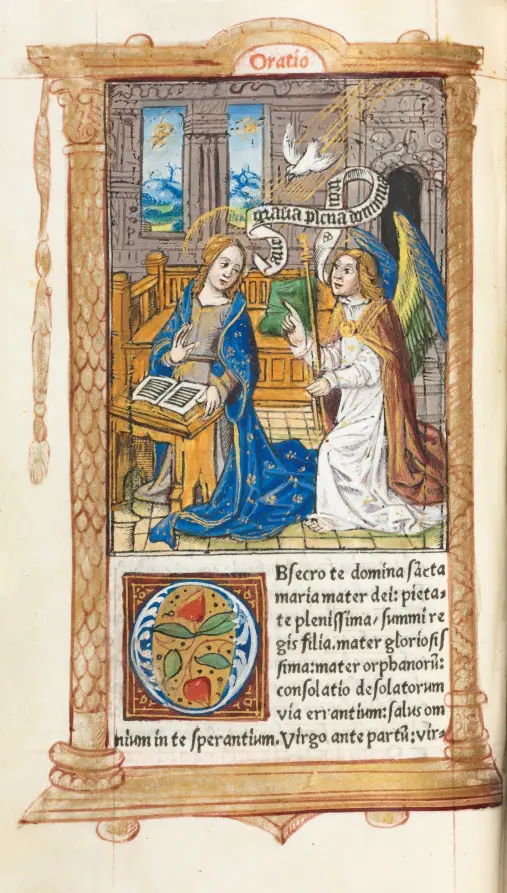 Oratio
aue
gracia plena dominus
tecū
OBsecro te domina sācta
maria mater dei: pieta-
te plenissima, summi re
gis filia. mater gloriosis
sima: mater orphanorū:
consolatio desolatorum
via errantium: salus om
nium in te sperantium. Virgo ante partū; vir-